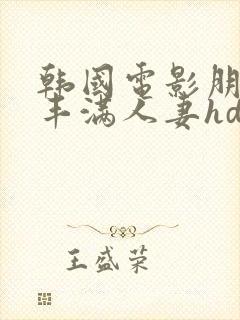 韩國电影朋
丰满人妻hd
王盛荣